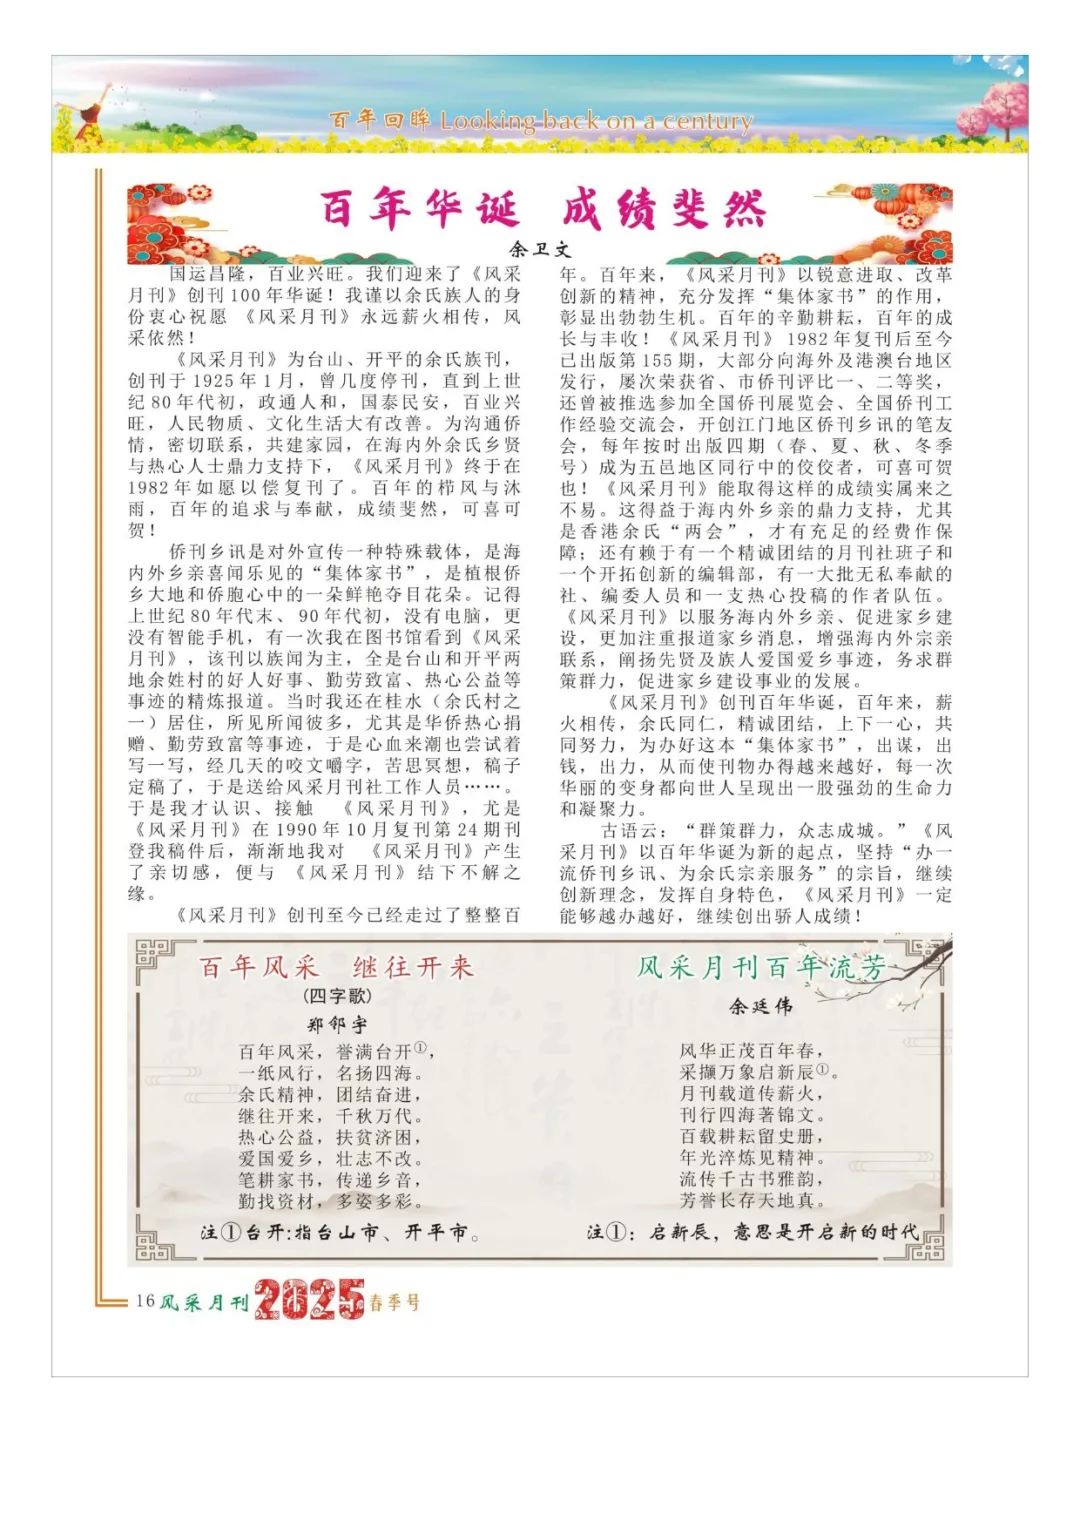 百年回眸 Looking back on a century
百年华诞 成绩斐然
余卫文
国运昌隆，百业兴旺。我们迎来了《风采
月刊》创刊100年华诞！我谨以余氏族人的身
份衷心祝愿 《风采月刊》永远薪火相传，风
采依然！
《风采月刊》为台山、开平的余氏族刊，
创刊于1925年1月，曾几度停刊，直到上世
纪80年代初，政通人和，国泰民安，百业兴
旺，人民物质、文化生活大有改善。为沟通侨
情，密切联系，共建家园，在海内外余氏乡贤
与热心人士鼎力支持下，《风采月刊》终于在
1982年如愿以偿复刊了。百年的栉风与沐
雨，百年的追求与奉献，成绩斐然，可喜可
贺！
侨刊乡讯是对外宣传一种特殊载体，是海
内外乡亲喜闻乐见的“集体家书”，是植根侨
乡大地和侨胞心中的一朵鲜艳夺目花朵。记得
上世纪80年代末、90年代初，没有电脑，更
没有智能手机，有一次我在图书馆看到《风采
月刊》，该刊以族闻为主，全是台山和开平两
地余姓村的好人好事、勤劳致富、热心公益等
事迹的精炼报道。当时我还在桂水（余氏村之
一）居住，所见所闻彼多，尤其是华侨热心捐
赠、勤劳致富等事迹，于是心血来潮也尝试着
写一写，经几天的咬文嚼字，苦思冥想，稿子
定稿了，于是送给风采月刊社工作人员……。
于是我才认识、接触 《风采月刊》，尤是
《风采月刊》在1990年10月复刊第24期刊
登我稿件后，渐渐地我对 《风采月刊》产生
了亲切感，便与 《风采月刊》结下不解之
缘。
《风采月刊》创刊至今已经走过了整整百
年。百年来，《风采月刊》以锐意进取、改革
创新的精神，充分发挥“集体家书”的作用，
彰显出勃勃生机。百年的辛勤耕耘，百年的成
长与丰收！《风采月刊》1982年复刊后至今
已出版第155期，大部分向海外及港澳台地区
发行，屡次荣获省、市侨刊评比一、二等奖，
还曾被推选参加全国侨刊展览会、全国侨刊工
作经验交流会，开创江门地区侨刊乡讯的笔友
会，每年按时出版四期（春、夏、秋、冬季
号）成为五邑地区同行中的佼佼者，可喜可贺
也！《风采月刊》能取得这样的成绩实属来之
不易。这得益于海内外乡亲的鼎力支持，尤其
是香港余氏“两会”，才有充足的经费作保
障；还有赖于有一个精诚团结的月刊社班子和
一个开拓创新的编辑部，有一大批无私奉献的
社、编委人员和一支热心投稿的作者队伍。
《风采月刊》以服务海内外乡亲、促进家乡建
设，更加注重报道家乡消息，增强海内外宗亲
联系，阐扬先贤及族人爱国爱乡事迹，务求群
策群力，促进家乡建设事业的发展。
《风采月刊》创刊百年华诞，百年来，薪
火相传，余氏同仁，精诚团结，上下一心，共
同努力，为办好这本“集体家书”，出谋，出
钱，出力，从而使刊物办得越来越好，每一次
华丽的变身都向世人呈现出一股强劲的生命力
和凝聚力。
古语云：“群策群力，众志成城。”《风
采月刊》以百年华诞为新的起点，坚持“办一
流侨刊乡讯、为余氏宗亲服务”的宗旨，继续
创新理念，发挥自身特色，《风采月刊》一定
能够越办越好，继续创出骄人成绩！
百年风采 继往开来
(四字歌)
郑邻宇
百年风采，誉满台开①，
一纸风行，名扬四海。
余氏精神，团结奋进，
继往开来，千秋万代。
热心公益，扶贫济困，
爱国爱乡，壮志不改。
笔耕家书，传递乡音，
勤找资材，多姿多彩。
注①台开:指台山市、开平市。
风采月刊百年流芳
余廷伟
风华正茂百年春，
采撷万象启新辰①。
月刊载道传薪火，
刊行四海著锦文。
百载耕耘留史册，
年光淬炼见精神。
流传千古书雅韵，
芳誉长存天地真。
注①：启新辰，意思是开启新的时代
16风采月刊2025春季号